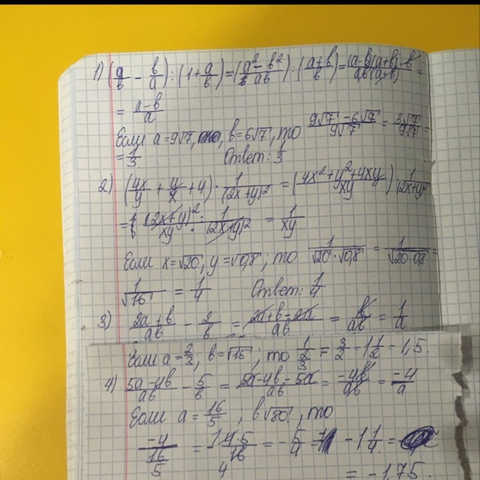 1) (a/b - b/a) : (1 + a/b) = (a² - b²/ab) : (a+b/b) = (a-b)(a+b)·b/ab(a+b) =
= a-b/a
Если a = 9√7, b = 6√7, то 9√7 - 6√7/9√7 = 3√7/9√7 =
= 1/3 Ответ: 1/3
2) (4x/y + y/x + 4) · 1/(2x+y)² = (4x² + y² + 4xy/xy) · 1/(2x+y)²
= (2x+y)²/xy · 1/(2x+y)² = 1/xy
Если x = √20, y = √0,8, то 1/√20·√0,8 = 1/√20·0,8 =
1/√16 = 1/4 Ответ: 1/4
3) 2a+b/ab - 2/b = 2a+b-2a/ab = b/ab = 1/a
Если a = 2/3, b = √15, то 1/2/3 = 3/2 = 1 1/2 = 1,5.
4) 5a-4b/ab - 5/b = 5a-4b-5a/ab = -4b/ab = -4/a
Если a = 16/5, b √80, то
-4/16/5 = = -5/4 = -1 1/4 =
= -1,75.